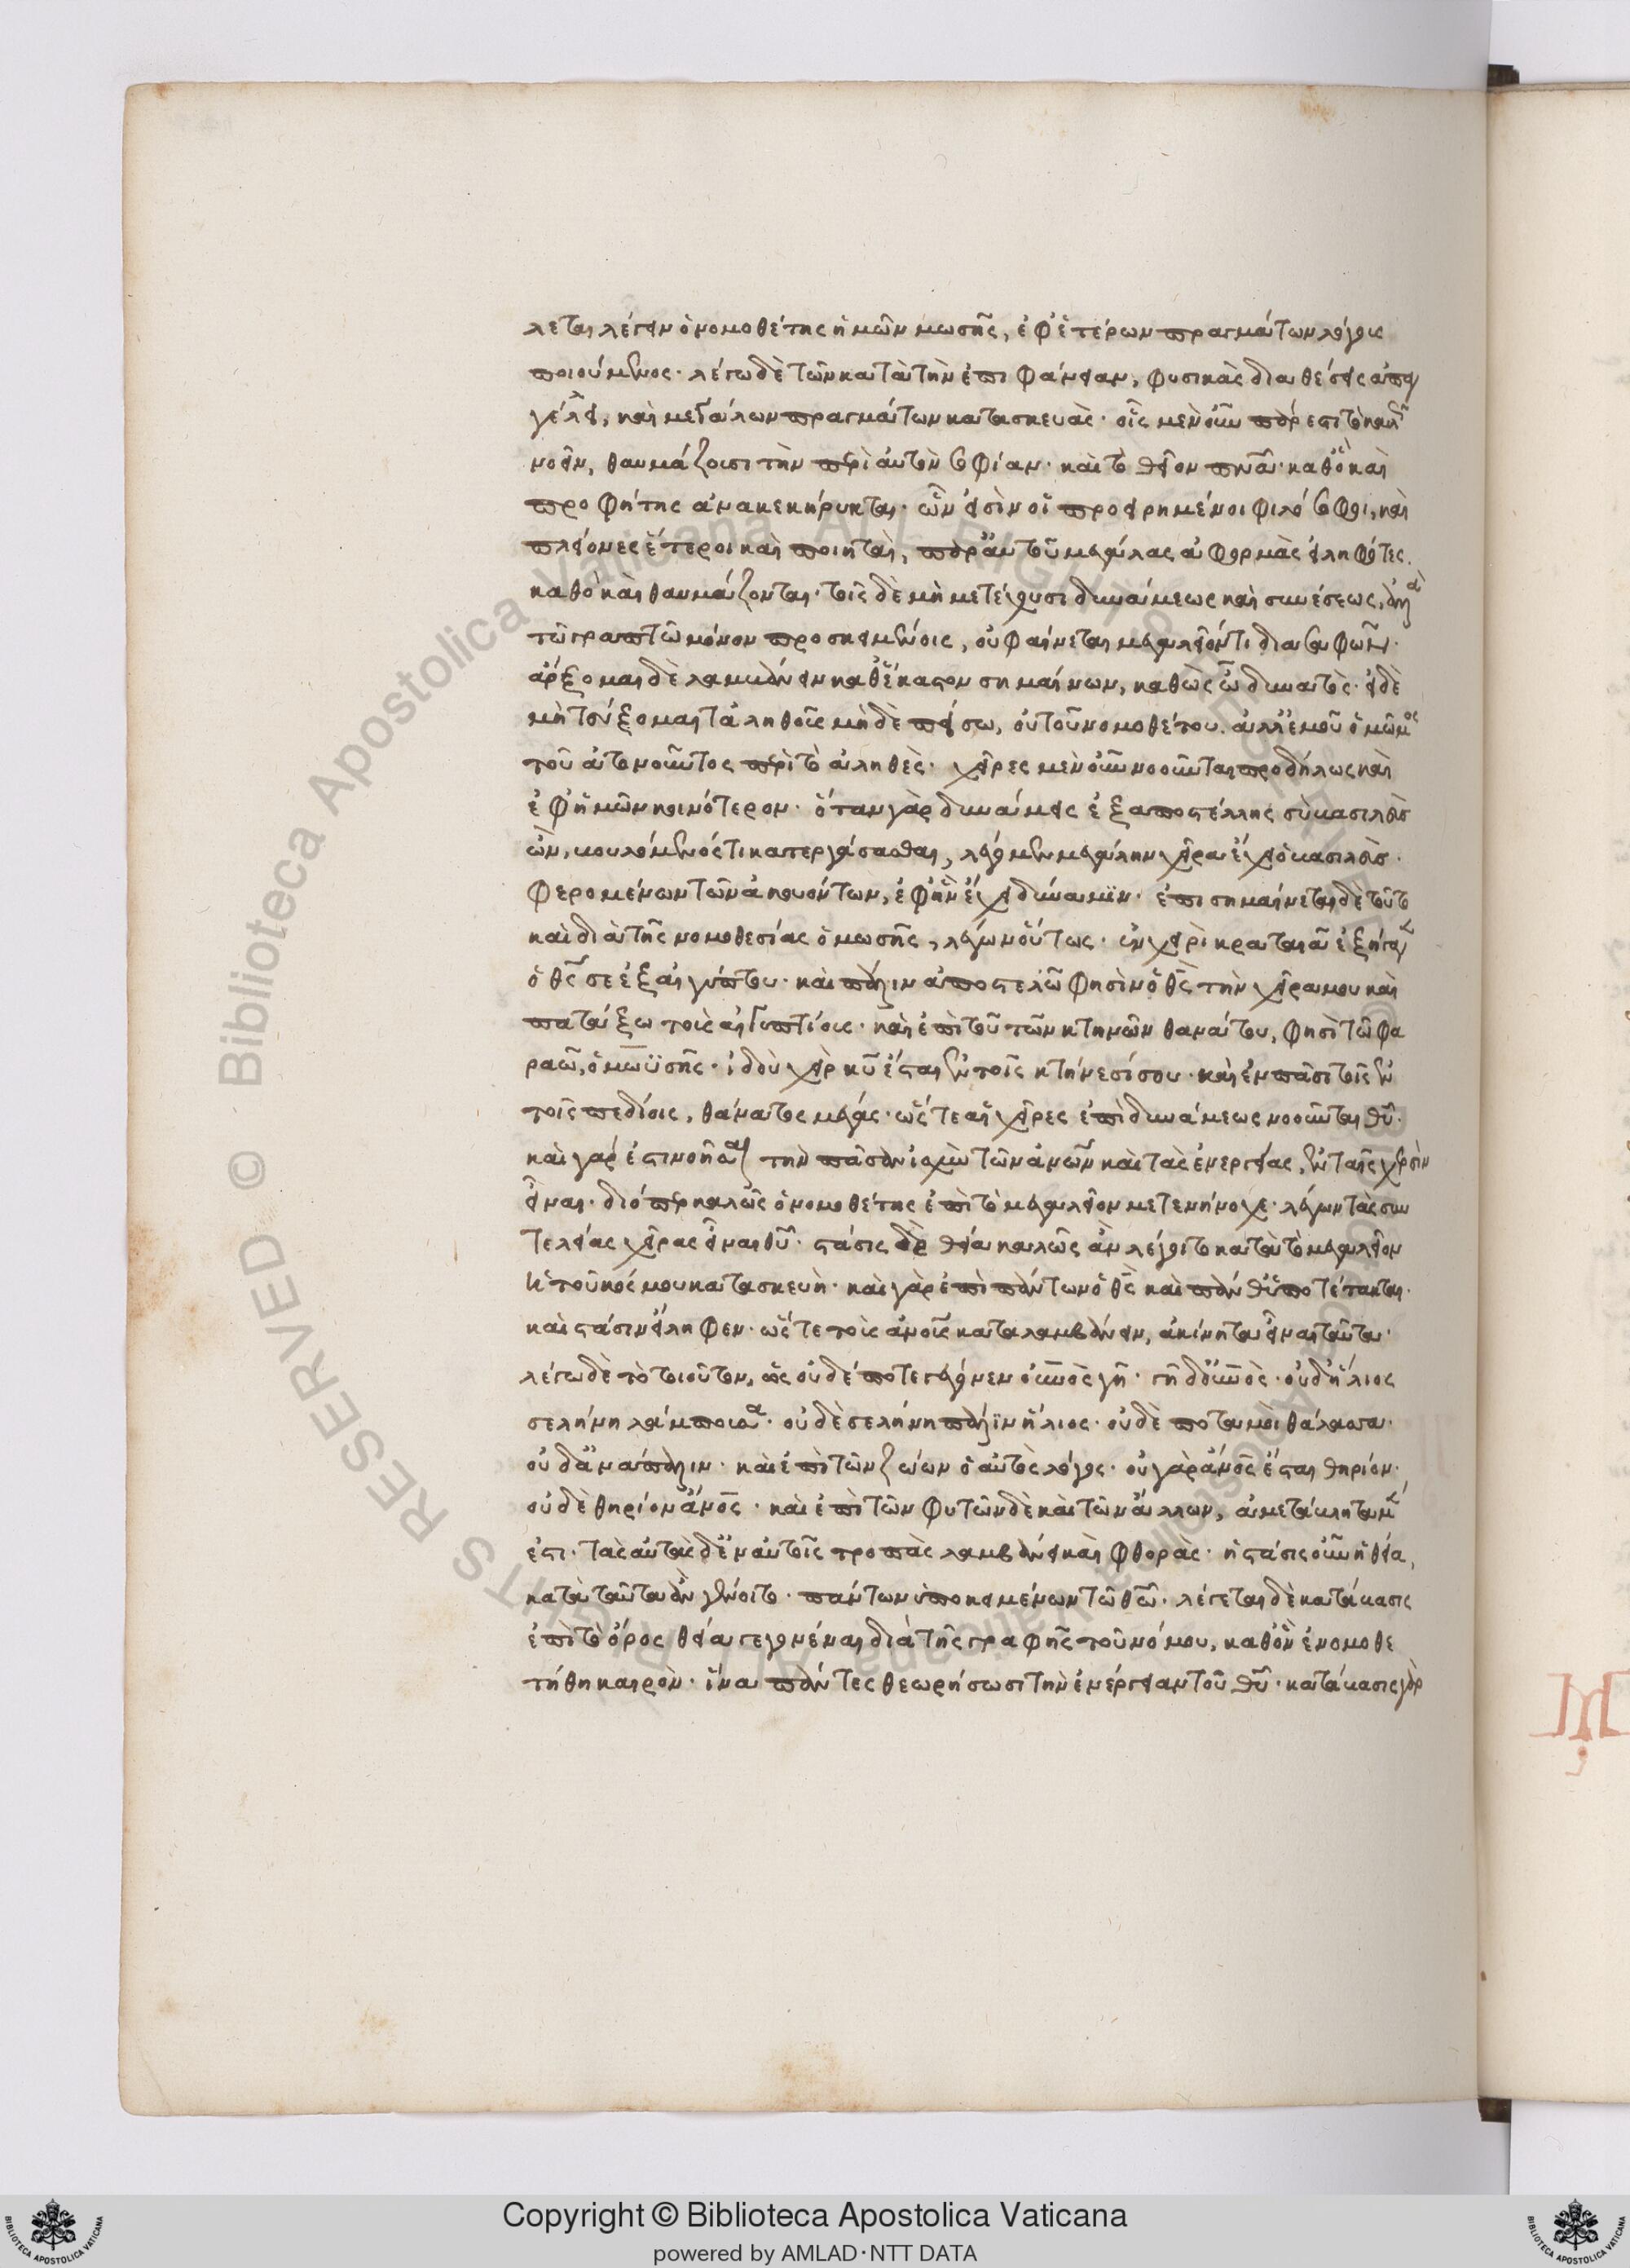 λεται λέγειν ὁ νομοθέτης ἡμῶν μωσῆς, ἐφ' ἑτέρων πραγμάτων λόγους
ποιούμενος· λέγω δὲ τῶν κατὰ τὴν ἐπιφάνειαν, φυσικὰς διαθέσεις ἀπαγ
γέλλει, καὶ μεγάλων πραγμάτων κατασκευάς· οἷς μὲν οὖν πάρεστι τὸ καλῶς
νοεῖν, θαυμάζουσι τὴν περὶ αὐτὸν σοφίαν· καὶ τὸ θεῖον πνεῦμα· καθ' ὃ καὶ
προφήτης ἀνακεκήρυκται· ὧν εἰσὶν οἱ προειρημένοι φιλόσοφοι, καὶ
πλείονες ἕτεροι καὶ ποιηταὶ, παρ' αὐτοῦ μεγάλας ἀφορμὰς εἰληφότες.
καθὸ καὶ θαυμάζονται· τοῖς δὲ μὴ μετέχουσι δυνάμεως καὶ συνέσεως, ἀλλὰ
τῶ γραπτῶ μόνον προσκειμένοις, οὐ φαίνεται μεγαλεῖόν τι διασαφῶν·
ἄρξομαι δὲ λαμβάνειν καθ' ἕκαστον σημαίνων, καθὼς ὦ δυνατός· εἰ δὲ
μὴ τεύξομαι τἀληθοῦς μηδὲ πείσω, οὐ τοῦ νομοθέτου. ἀλλ' ἐμοῦ ὁ μῶμος
τοῦ ἀτονοῦντος περὶ τὸ ἀληθές· χεῖρες μὲν οὖν νοοῦνται προδήλως καὶ
ἐφ' ἡμῶν κοινότερον· ὅταν γὰρ δυνάμεις ἐξαποστέλλης σὺ βασιλεὺς
ὢν, βουλόμενός τι κατεργάσασθαι, λέγομεν μεγάλην χεῖρα ἔχει ὁ βασιλεύς·
φερομένων τῶν ἀκουόντων, ἐφ' ἣν ἔχει δύναμιν· ἐπισημαίνεται δὲ τοῦτο
καὶ διὰ τῆς νομοθεσίας ὁ μωσῆς, λέγων οὕτως· ἐν χειρὶ κραταιᾶ ἐξήγαγε
ὁ θς σε ἐξ αἰγύπτου· καὶ πάλιν ἀποστελῶ φησὶν ὁ θς τὴν χεῖρα μου καὶ
πατάξω τοὺς αἰγυπτίους· καὶ ἐπὶ τοῦ τῶν κτηνῶν θανάτου, φησὶ τῶ φα
ραῶ, ὁ μωϋσῆς· ἰδοὺ χεὶρ κυ ἔσται ἐν τοῖς κτήνεσί σου· καὶ ἐν πᾶσι τοῖς ἐν
τοῖς πεδίοις, θάνατος μέγας· ὥστε αἱ χεῖρες ἐπὶ δυνάμεως νοοῦνται θυ·
καὶ γάρ ἐστι νοῆσαι τὴν πᾶσαν ἰσχὺν τῶν ἀνων καὶ τὰς ἐνεργείας, ἐν ταῖς χερσὶν
εἶναι· διόπερ καλῶς ὁ νομοθέτης ἐπὶ τὸ μεγαλεῖον μετενήνοχε· λέγων τὰς συν
τελείας χεῖρας εἶναι θυ· στάσις δὲ θεία καλῶς ἂν λέγοιτο κατὰ τὸ μεγαλεῖον
ἡ τοῦ κόσμου κατασκευή· καὶ γὰρ ἐπὶ πάντων ὁ θς καὶ πάνθ' ὑποτέτακται·
καὶ στάσιν εἴληφεν· ὥστε τοὺς ἀνους καταλαμβάνειν, ἀκίνητα εἶναι ταῦτα·
λέγω δὲ τὸ τοιοῦτον, ὡς οὐδέποτε γέγονεν οὐνος γῆ· γῆ δ' οὐνος· οὐδ' ἥλιος
σελήνη λάμπουσα· οὐδὲ σελήνη πάλιν ἥλιος· οὐδὲ ποταμοὶ θάλασσα·
οὐδ' ἀνάπαλιν· καὶ ἐπὶ τῶν ζώων ὁ αὐτὸς λόγος· οὐ γὰρ ἄνος ἔσται θηρίον·
οὐδὲ θηρίον ἄνος· καὶ ἐπὶ τῶν φυτῶν δὲ καὶ τῶν ἄλλων, ἀμετάβλητα μέν
ἐστι· τὰς αὐτὰς δ' ἐν αὐτοῖς τροπὰς λαμβάνει καὶ φθοράς· ἡ στάσις οὖν ἡ θεία,
κατὰ ταῦτα ἂν γένοιτο· πάντων ὑποκειμένων τῶ θω· λέγεται δὲ κατάβασις
ἐπὶ τὸ ὄρος θεία γεγονέναι διὰ τῆς γραφῆς τοῦ νόμου, καθ' ὃν ἐνομοθε
τήθη καιρόν· ἵνα πάντες θεωρήσωσι τὴν ἐνέργειαν τοῦ θυ· κατάβασις γὰρ
Copyright © Biblioteca Apostolica Vaticana
powered by AMLAD·NTT DATA